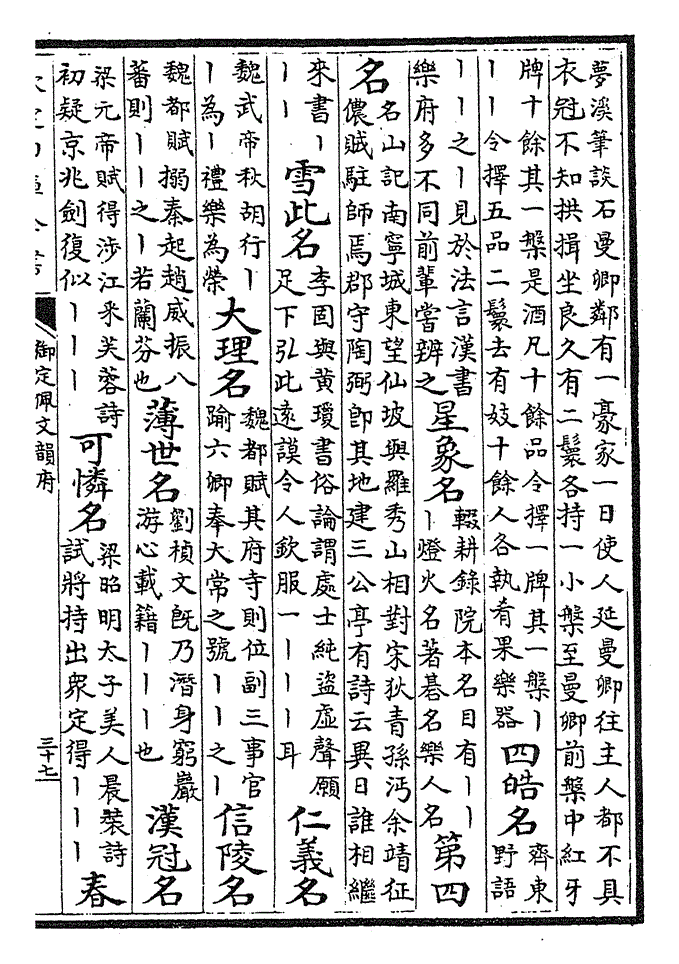 夢溪筆談石曼卿鄰有一豪家一日使人延曼卿往主人都不具
衣冠不知拱揖坐良久有二鬟各持一小槃至曼卿前槃中紅牙
牌十餘其一槃是酒凡十餘品令擇一牌其一槃丨
丨丨令擇五品二鬟去有妓十餘人各執肴果樂器
四皓名
齊東
野語
丨丨之丨見於法言漢書
樂府多不同前輩嘗辨之
星象名
輟耕錄院本名目有丨丨
丨燈火名著棊名樂人名
第四
名
名山記南寧城東望仙坡與羅秀山相對宋狄青孫沔余靖征
儂賊駐師焉郡守陶弼卽其地建三公亭有詩云異日誰相繼
來書丨
丨丨
雪此名
李固與黃瓊書俗論謂處士純盜虛聲願
足下弘此遠謨令人欽服一丨丨丨耳
仁義名
魏武帝秋胡行丨
丨為丨禮樂為榮
大理名
魏都賦其府寺則位副三事官
踰六卿奉大常之號丨丨之丨
信陵名
魏都賦搦秦起趙威振八
蕃則丨丨之丨若蘭芬也
薄世名
劉楨文旣乃潛身窮巖
游心載籍丨丨丨也
漢冠名
梁元帝賦得涉江采芙蓉詩
初疑京兆劍復似丨丨丨
可憐名
梁昭明太子美人晨裝詩
試將持出衆定得丨丨丨
春
御定佩文韻府
三十七